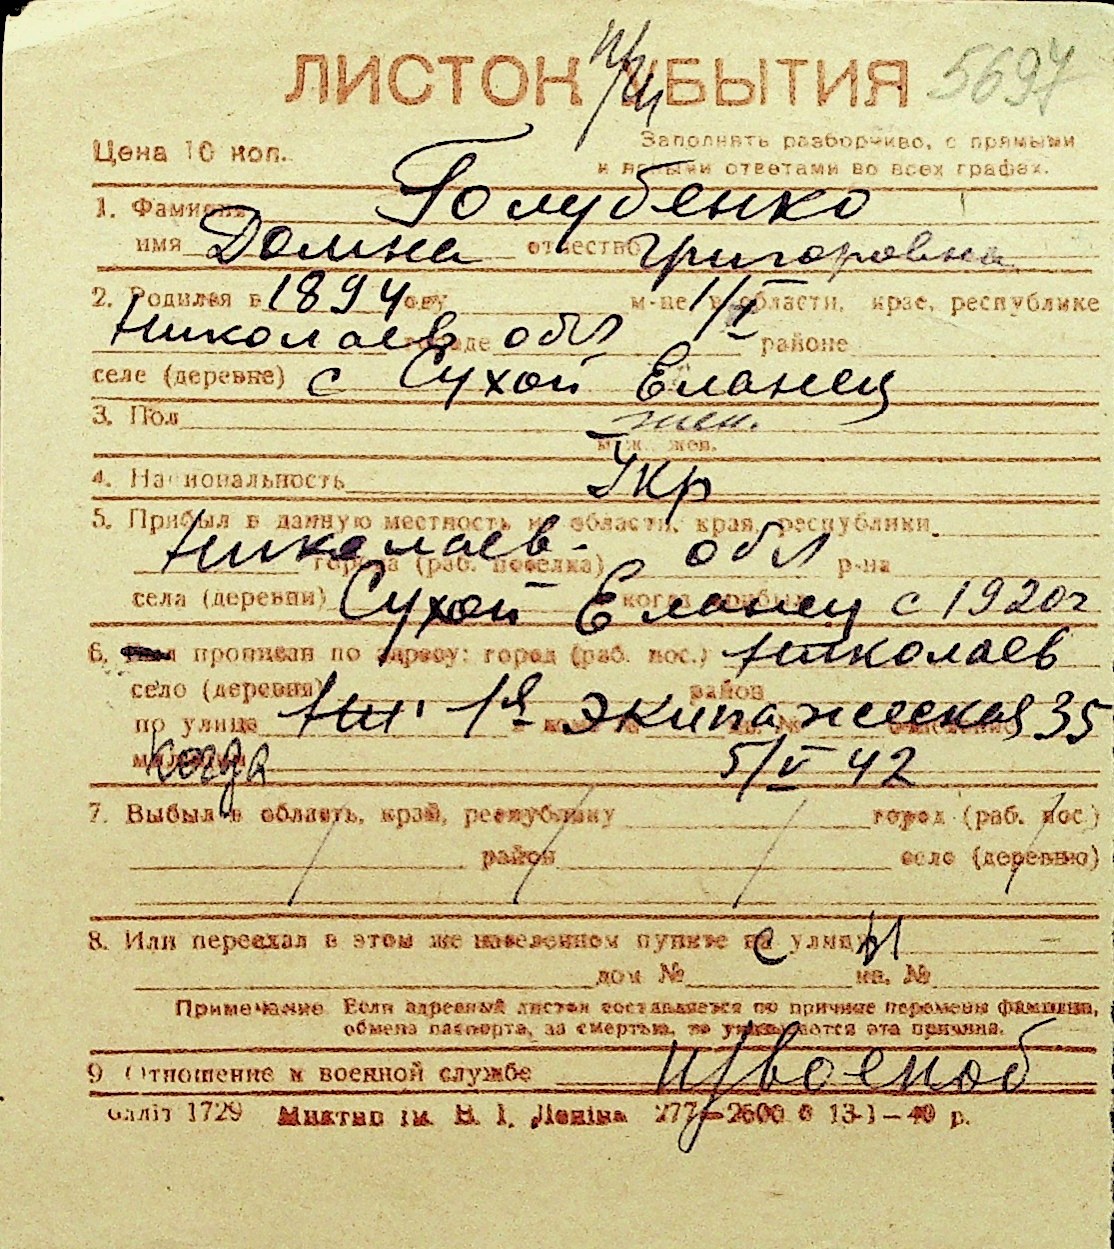 ЛИСТОК УБЫТИЯ 5697
Цена 10 коп.
Заполнять разборчиво, с прямыми
и ясными ответами во всех графах.
1. Фамилия Голубенко
имя Домна отчество Григоровна
2. Родился в 1894 году м-це 1/V в области, крае, республике
Николаев городе обл районе
селе (деревне) с Сухой Еланец
3. Пол жен.
муж. жен.
4. Национальность Укр
5. Прибыл в данную местность из области, края, республики
Николаев- города (раб. поселка) обл р-на
села (деревни) Сухой Еланец когда прибыл с 1920г
6. прописан по адресу: город (раб. пос.) Николаев
село (деревня) район
по улице 1я Экипажеская 35
когда 5/V 42
7. Выбыл в область, край, республику город (раб. пос.)
район село (деревню)
8. Или переехал в этом же населенном пункте на улицу
дом № кв. №
Примечание Если адресный листок составляется по причине перемены фамилии,
обмена паспорта, за смертью, то указывается эта причина.
9 Отношение к военной службе н/военоб
Облліт 1729 ім. В. І. Леніна 277—2600 13-1—40 р.